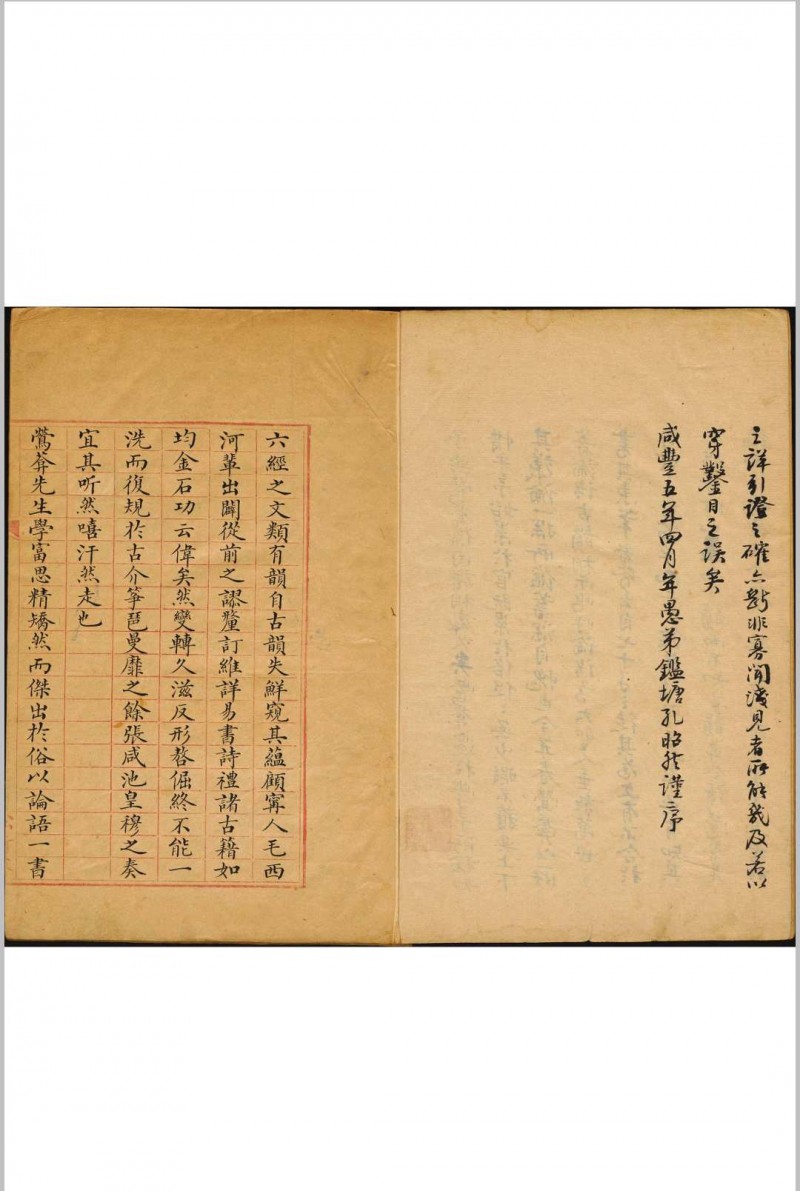 之詳引證之確亦斷非寡聞淺見者所能幾及若以
穿鑿目之誤矣
咸豐五年四月年愚弟鑑塘孔昭然謹序
六經之文類有韻自古韻失鮮窺其蘊顧寧人毛西
河輩出闢從前之謬釐訂維詳易書詩禮諸古籍如
均金石功云偉矣然變轉久滋反形聱倔終不能一
洗而復規於古介箏琶曼靡之餘張咸池皇穆之奏
宜其听然嘻汗然走也
鶯莽先生學富思精矯然而傑出於俗以論語一書